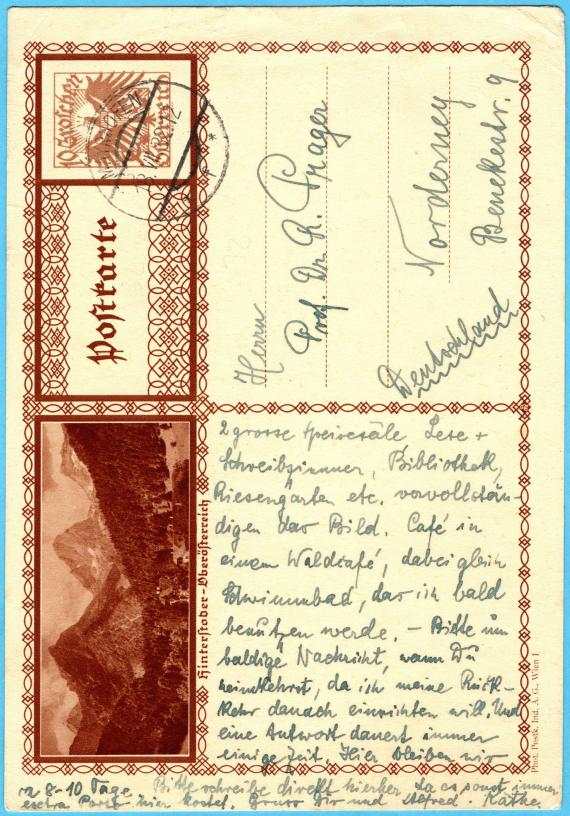 10 Groschen
Österreich
Postkarte
Herrn
Prof. Dr. R. Prager
Norderney
Benekestr. 9
Deutschland
Hinterstoder-Oberösterreich
2 grosse Speisesäle, Lese +
Schreibzimmer, Bibliothek,
Riesengarten etc. vervollstän-
digen das Bild. Café in
einem Waldcafé, dabei gleich
Schwimmbad, das ich bald
benutzen werde. – Bitte um
baldige Nachricht, wann Du
heimkehrst, da ich meine Rück-
kehr danach einrichten will. Und
eine Antwort dauert immer
einige Zeit. Hier bleiben wir
ca 8-10 Tage. Bitte schreibe direkt hierher da es sonst immer
extra Porto hier kostet. Gruss Dir und Alfred. Käthe.
Phot. Postk. Ind. A. G., Wien I